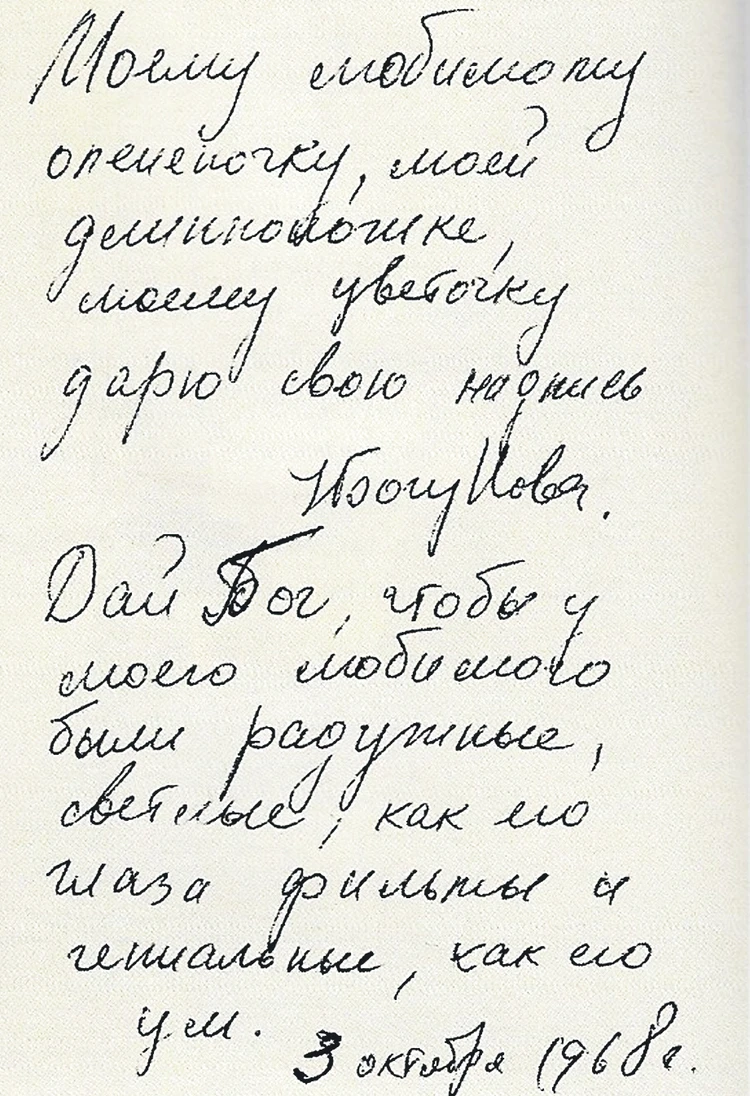 Моему любимому
олененочку, моей
длинноножке,
моему цветочку
дарю свою надпись
НБогунова.
Дай Бог, чтобы у
моего любимого
были радужные,
светлые, как его
глаза фильмы и
гениальные, как его
ум.
3 октября 1968 г.